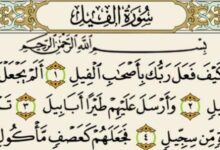 سُورَةُ الْفِيلِ
بِسْمِ اللَّهِ الرَّحْمَٰنِ الرَّحِيمِ
كَيْفَ فَعَلَ رَبُّكَ بِأَصْحَابِ الْفِيلِ ١ أَلَمْ يَجْعَلْ
٢ وَأَرْسَلَ عَلَيْهِمْ طَيْرًا أَبَابِيلَ ٣
مِنْ سِجِّيلٍ ٤ فَجَعَلَهُمْ كَعَصْفٍ مَأْكُولٍ